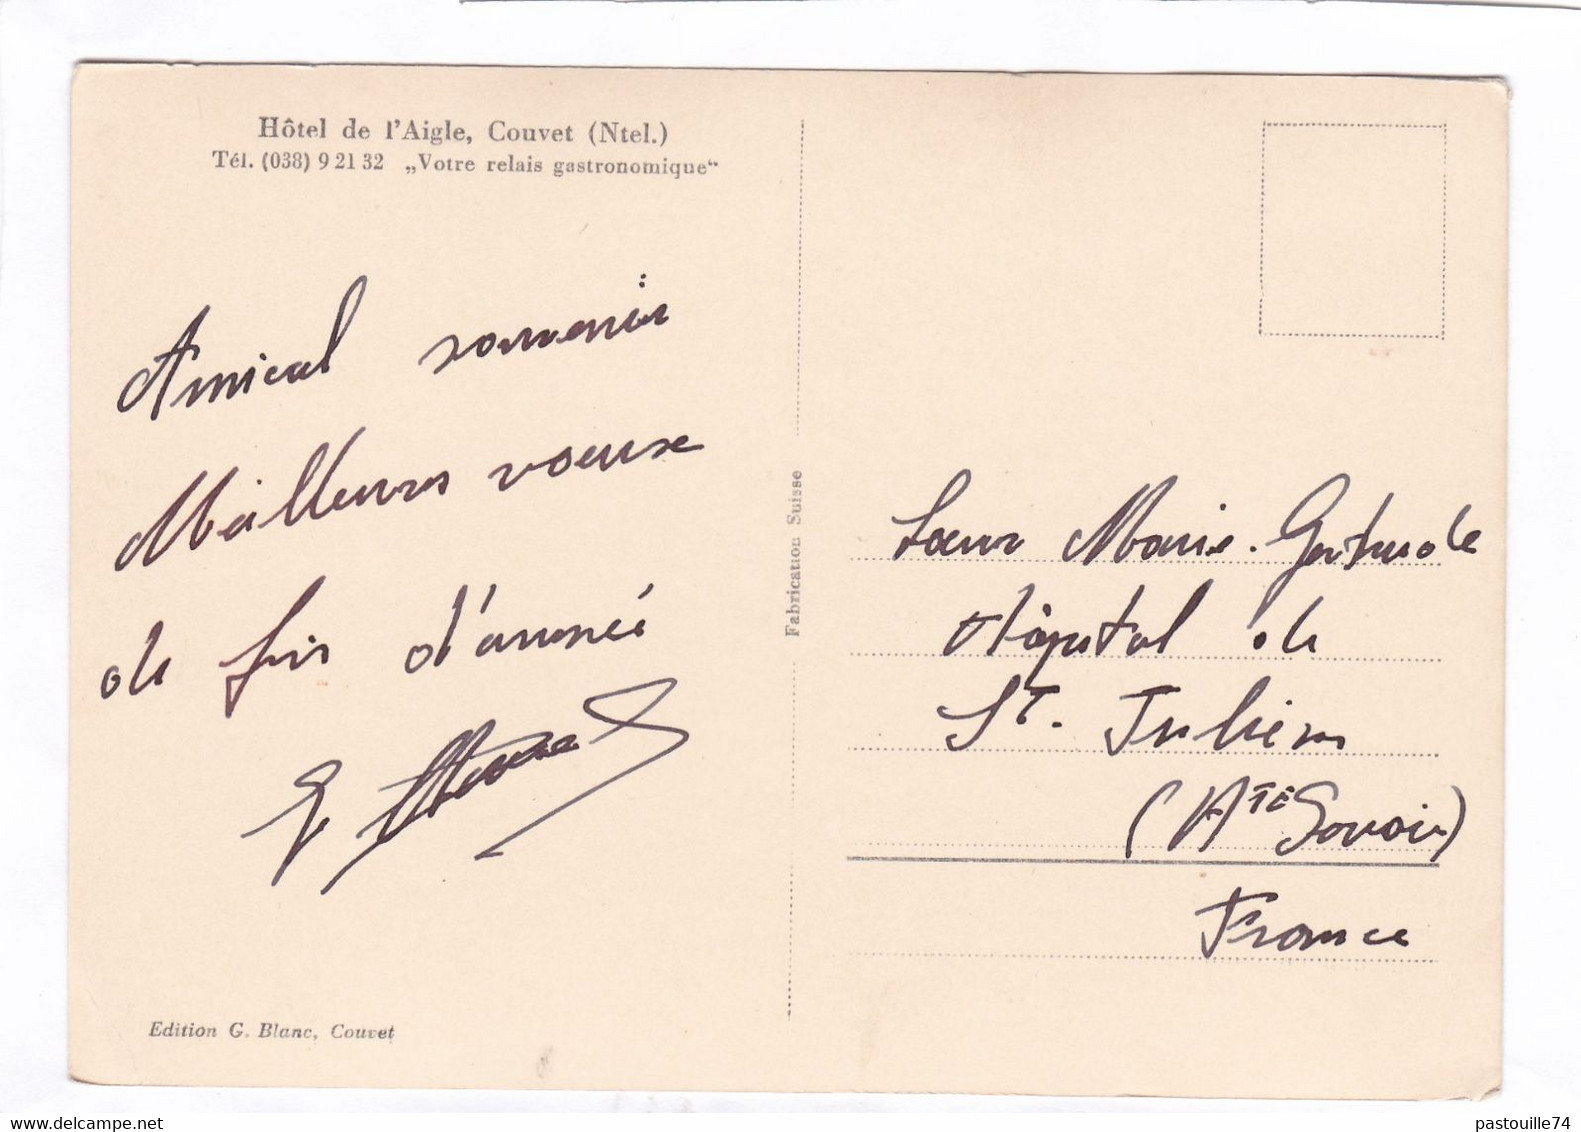 Hôtel de l'Aigle, Couvet (Ntel.)
Tél. (038) 9 21 32 „Votre relais gastronomique“
Amical souvenir
Meilleurs voeux
de fin d'année
Fabrication Suisse
Soeur Marie-Gertrude
Hôpital de
St. Julien
(Hte Savoie)
France
Edition G. Blanc, Couvet
pastouille74
delcampe.net